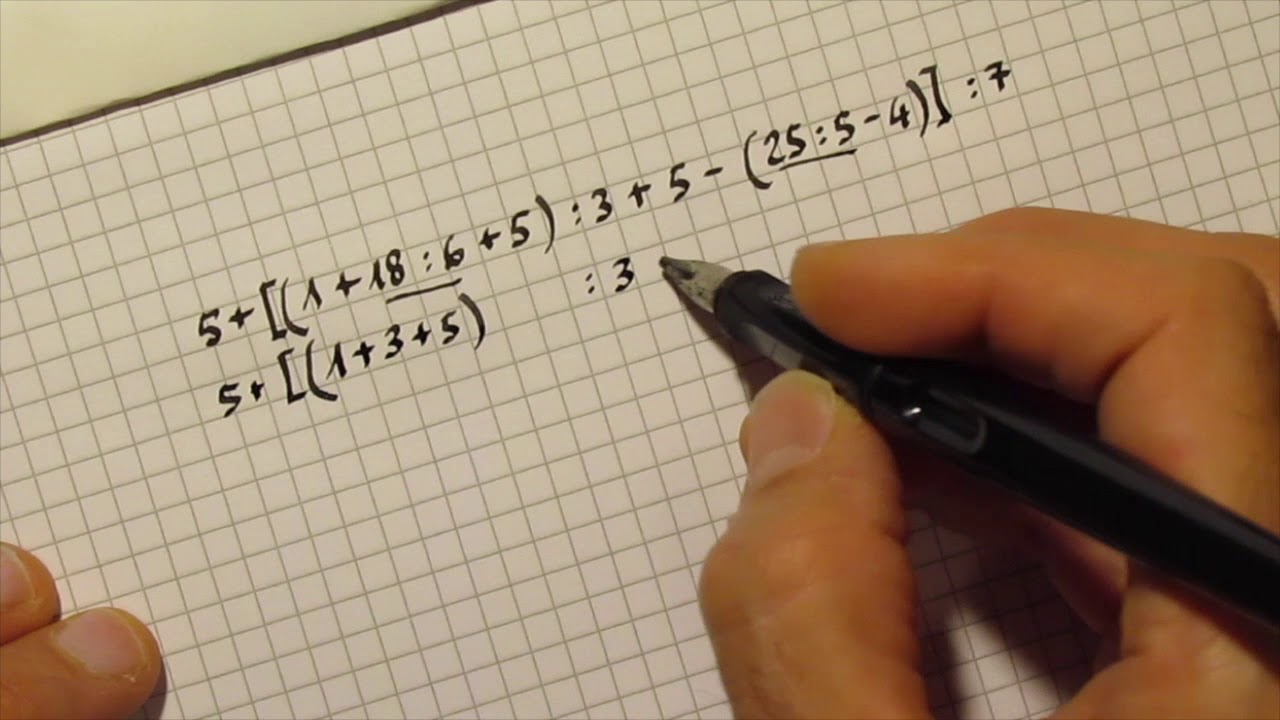 5+[(1+18:6+5):3+5-(25:5-4)]:7
5+[(1+3+5) :3